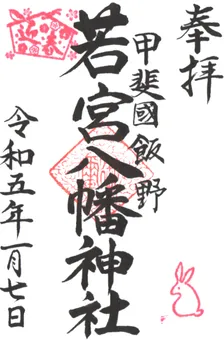 奉拝
甲斐國飯野
若宮八幡神社
令和五年一月七日